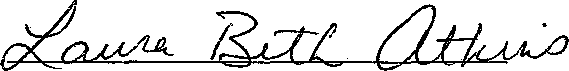 Laura Beth Atkins